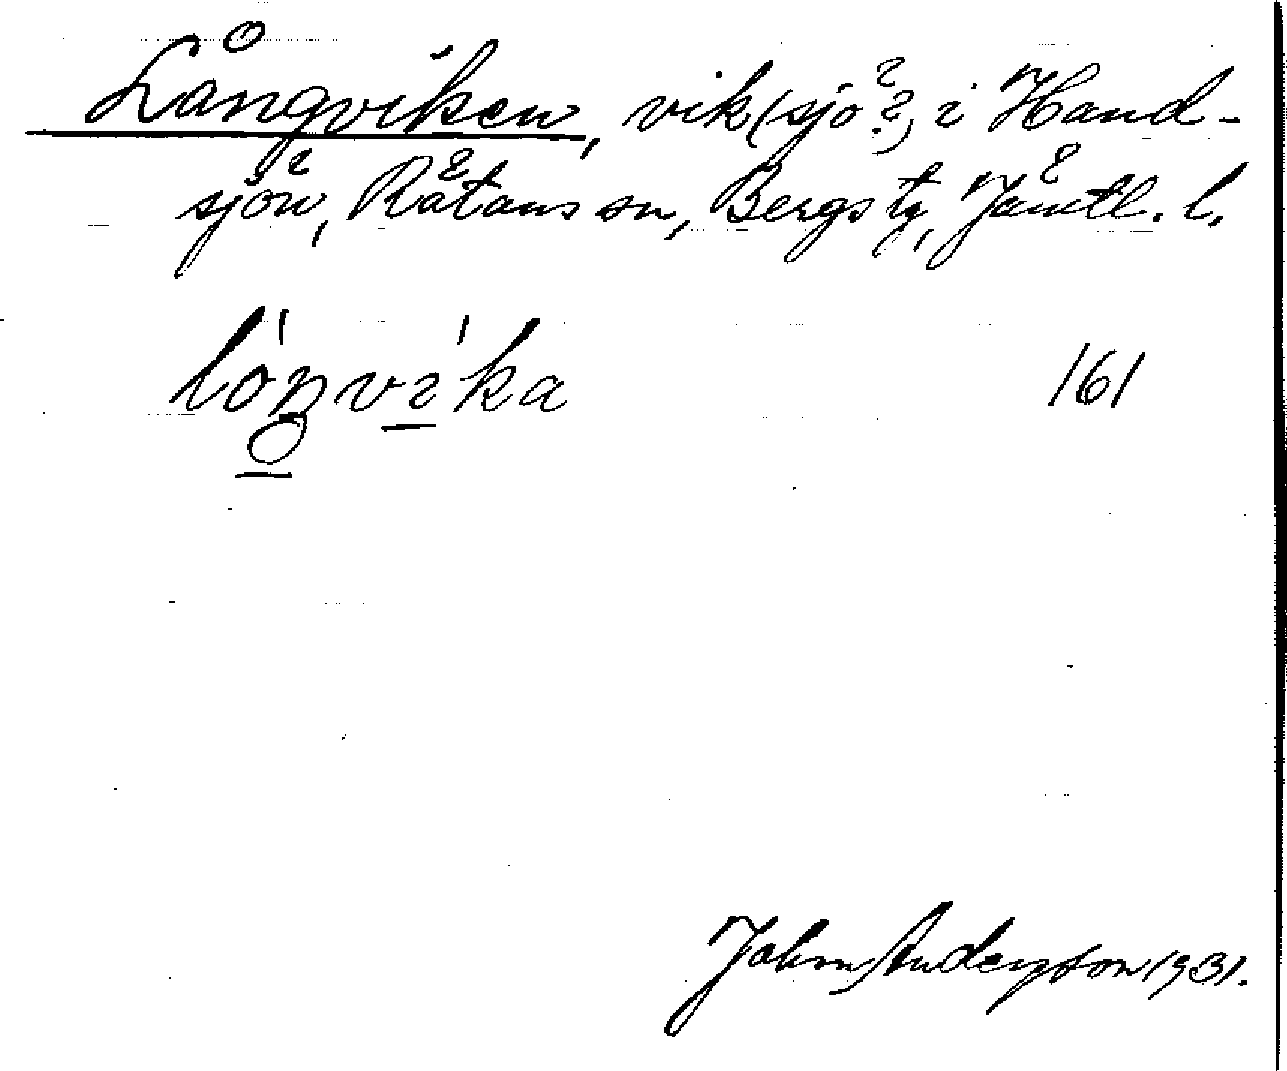 Långviken, vik (sjö?), i Hand-
sjön, Rätans sn, Bergs tg, Jämtl. l.
lóŋvı̍ka 161
John Anderzson 1931.